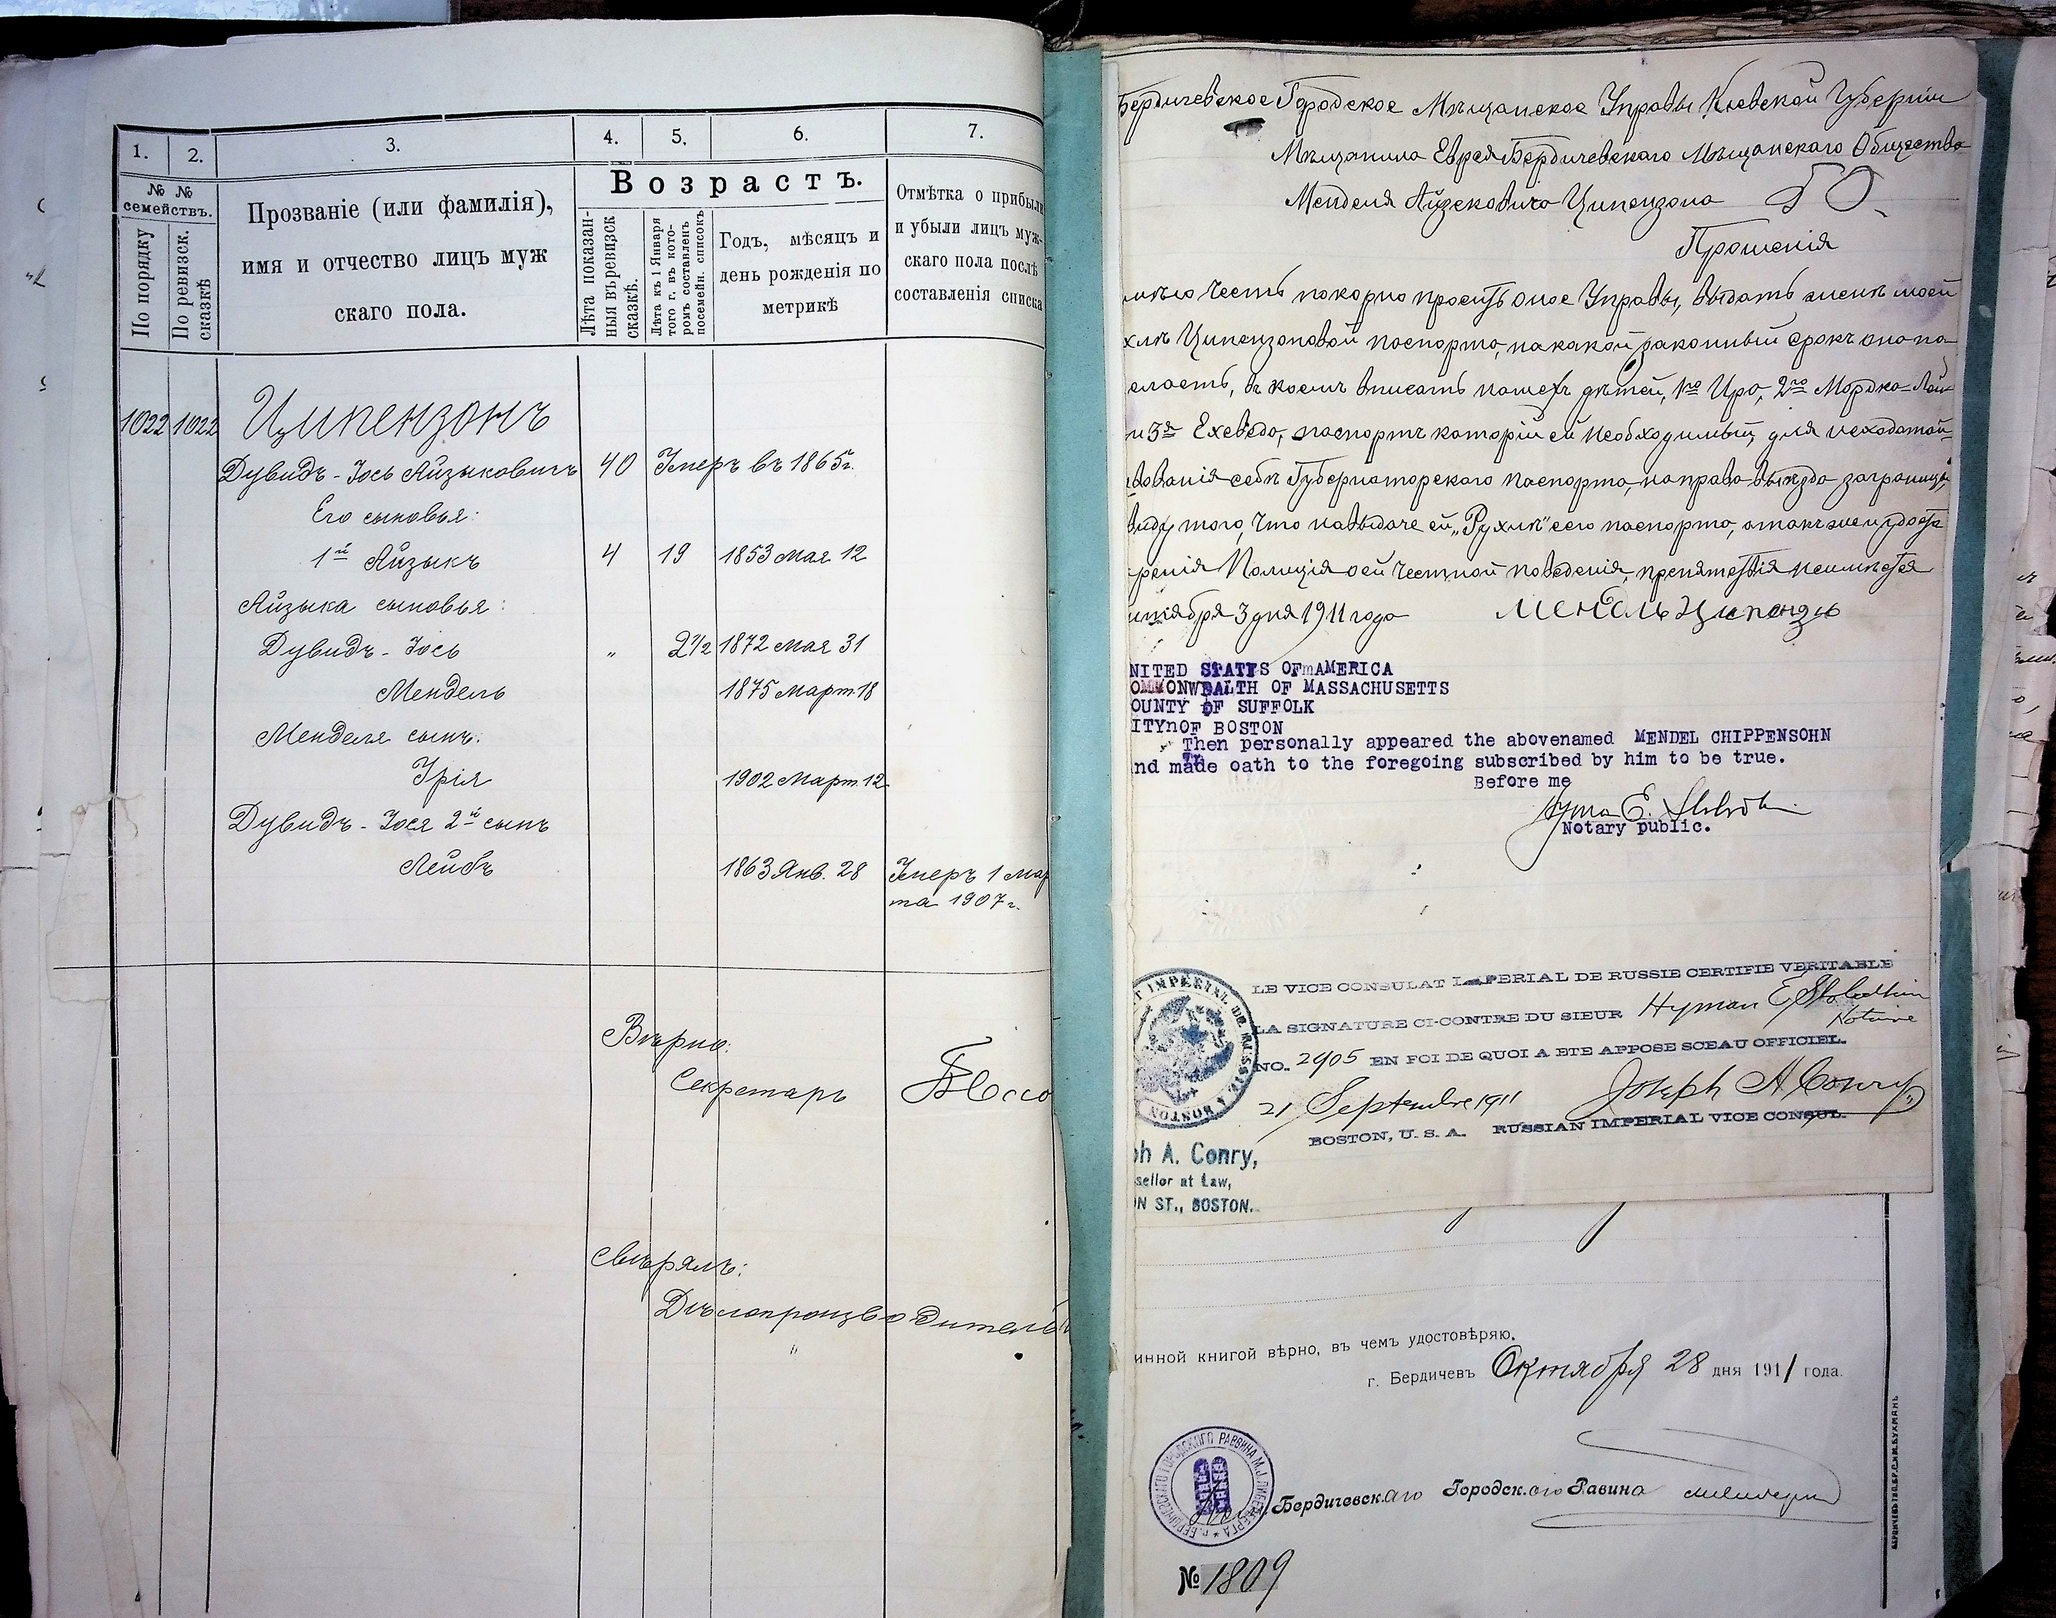 1. 2. 3. 4. 5. 6. 7.
№ № семействъ.
По порядку
По ревизск. сказкѣ
Прозваніе (или фамилія),
имя и отчество лицъ муж
скаго пола.
Возрастъ.
Лѣта показан-
ныя въ ревизск
сказкѣ.
Лѣта къ 1 Января
того г. въ кото-
ромъ составленъ
посемейн. списокъ
Годъ, мѣсяцъ и
день рожденія по
метрикѣ
Отмѣтка о прибыли
и убыли лицъ муж-
скаго пола послѣ
составленія списка
1022 1022 Ципензонъ
Дувидъ-Іось Айзыковичъ 40 Умеръ въ 1865 г.
Его сыновья:
1й Айзыкъ 4 19 1853 мая 12
Айзыка сыновья:
Дувидъ-Іось „ 2 1/2 1872 мая 31
Мендель 1875 март 18
Менделя сынъ:
Ірія 1902 март 12
Дувидъ-Іося 2й сынъ
Лейбъ 1863 Янв. 28 Умеръ 1 мар
та 1907 г.
Вѣрно:
Секретарь
Свѣрялъ:
Дѣлопроизводитель
Бердичевское Городское Мѣщанское Управы Кіевской Губерніи
Мѣщанина Еврея Бердичевскаго Мѣщанскаго Общества
Менделя Айзековича Ципензона
Прошенія
имѣю честь покорно просить оное Управы, выдать женѣ моей
хлѣ Ципензоновой паспорта, на какой законный срокъ она по
елаеть, въ коемъ вписать нашехъ дѣтей, 1го Иро, 2го Мордко-Лей
и 3я Ехеведо, паспортъ каторіи ей необходимый для исходотай-
вованія себѣ Губернаторскаго паспорта, на право выѣзда заграницу,
виду того, что на выдаче ей „Рухлѣ" сего паспорта, а такъ же и удост
ренія Полиція о ей честной поведенія, препятствія неимѣется
нтября 3 дня 1911 года Мендель Ципензо
NITED STATES OF AMERICA
OMMONWEALTH OF MASSACHUSETTS
OUNTY OF SUFFOLK
ITYnOF BOSTON
Then personally appeared the abovenamed MENDEL CHIPPENSOHN
nd made oath to the foregoing subscribed by him to be true.
Before me
Notary public.
LE VICE CONSULAT IMPERIAL DE RUSSIE CERTIFIE VERITABLE
LA SIGNATURE CI-CONTRE DU SIEUR Hyman E
Notaire
NO. 2905 EN FOI DE QUOI A ETE APPOSE SCEAU OFFICIEL.
21 Septembre 1911 Joseph A Conry
BOSTON, U. S. A. RUSSIAN IMPERIAL VICE CONSUL.
T IMPERIAL DE RUSSIE A BOSTON
ph A. Conry,
sellor at Law,
ON ST., BOSTON.
инной книгой вѣрно, въ чемъ удостовѣряю.
г. Бердичевъ Октября 28 дня 1911 года.
Бердичевскаго Городского Равина
№ 1809